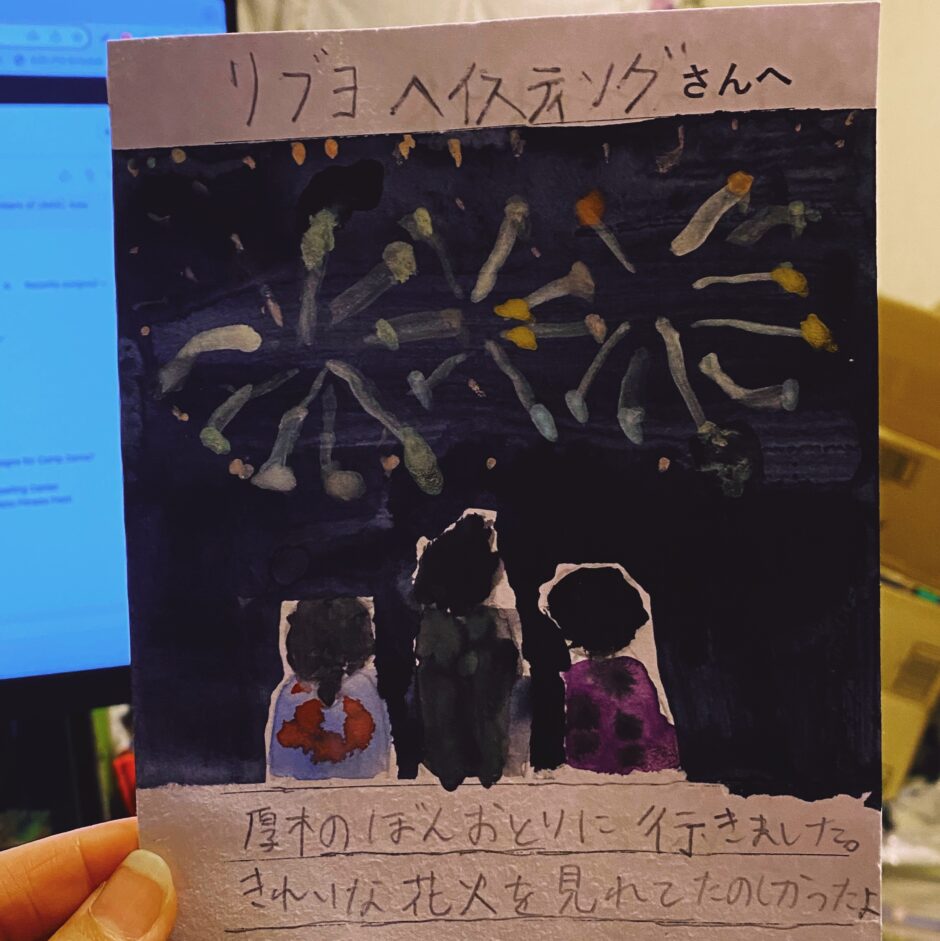 リブヨ ヘイスティング さんへ
厚木のぼんおとりに 行きました。
きれいな 花火を見れてたのしかったよ